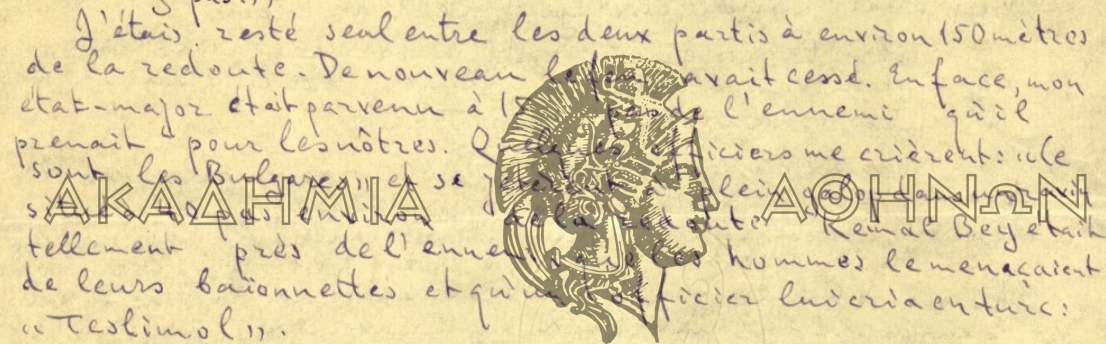 J'étais resté seul entre les deux partis à environ 150 mètres
de la redoute. De nouveau le feu avait cessé. En face, mon
état-major était parvenu à pas de l'ennemi qu'il
prenait pour les nôtres. Quelques officiers me crièrent: «Ce
sont les Bulgares» et se jetèrent à plein galop dans un ravin
ΑΚΑΔΗΜΙΑ ΑΘΗΝΩΝ
pas environ de la redoute. Kemal Bey était
tellement près de l'ennemi que les hommes le menaçaient
de leurs baïonnettes et qu'un officier lui cria en turc:
«Teslimol».